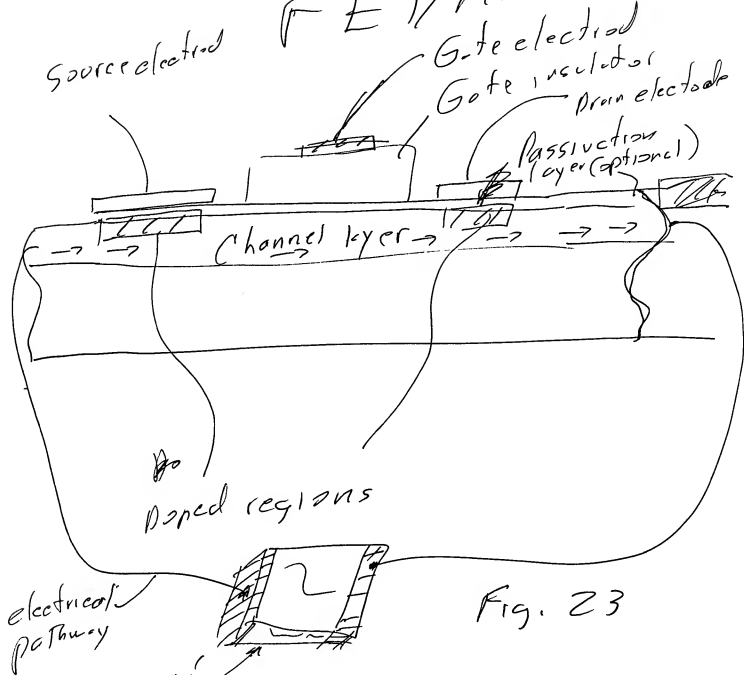 Source electrod
Gate electrod
Gate insulator
Drain electrode
Passivation
layer (optional)
Channel layer
Doped regions
electrical
pathway
Fig. 23